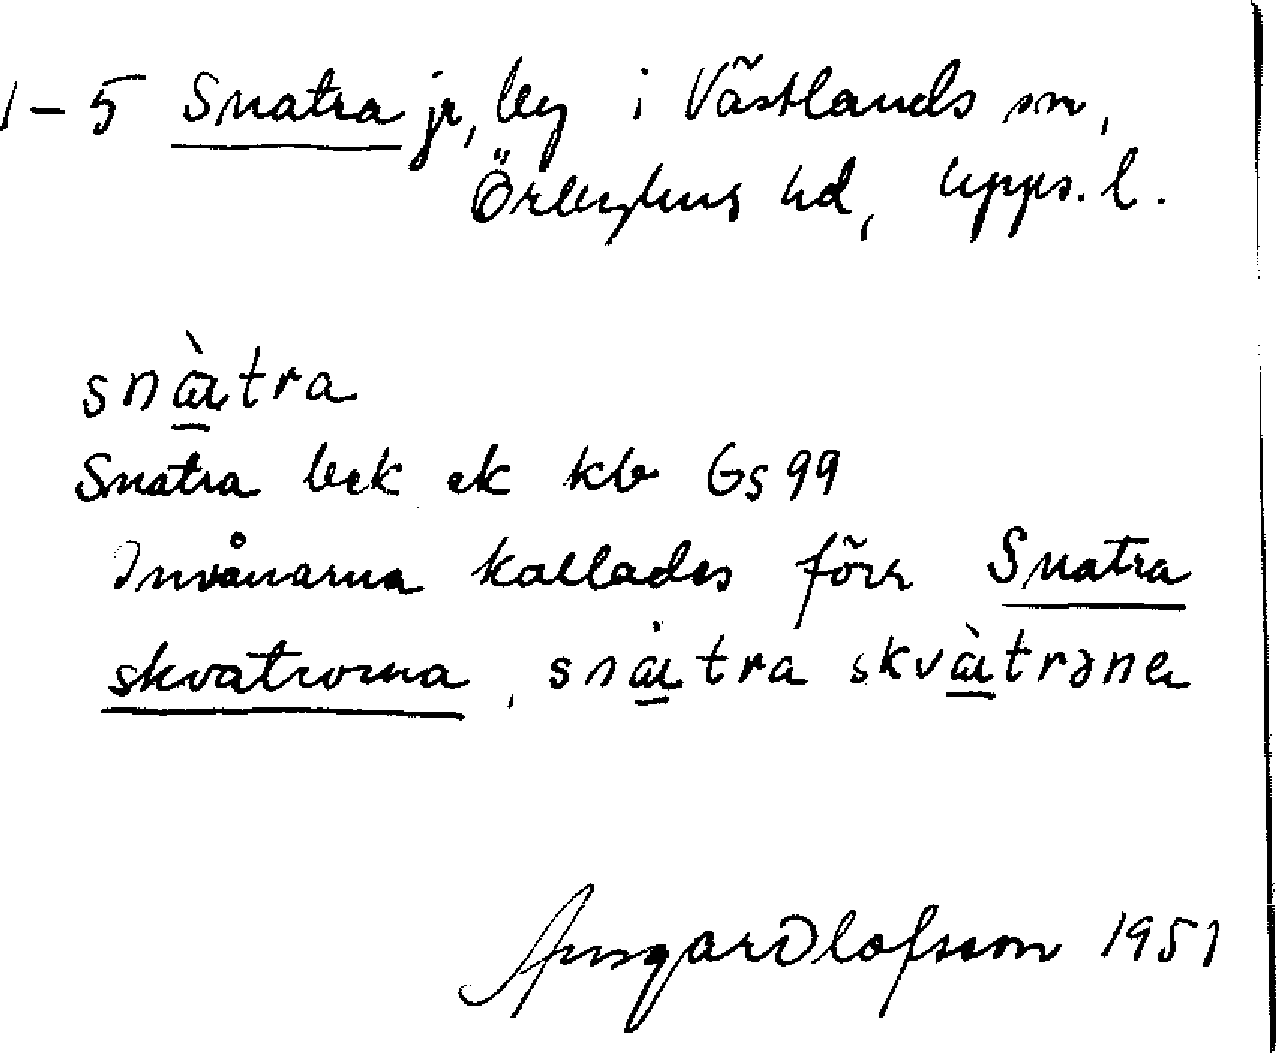 1-5 Snatra jr, by i Västlands sn,
Örbyhus hd, Upps. l.
snàtra
Snatra bek ek kb Gs 99
Invånarna kallades förr Snatra
skvatrorna, snatra skvàtrəna
Ansgar Olofsson 1951